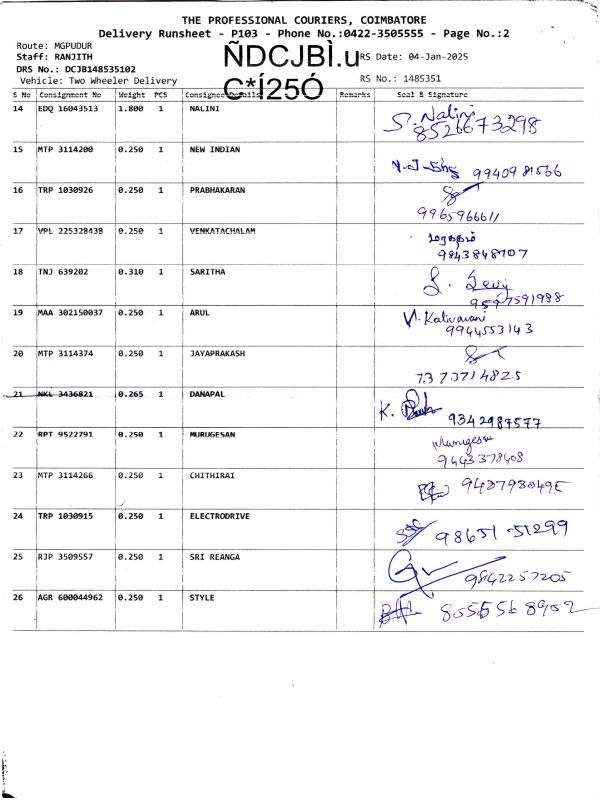 THE PROFESSIONAL COURIERS, COIMBATORE
Delivery Runsheet - P103 - Phone No.:0422-3505555 - Page No.:2
Route: MGPUDUR
Staff: RANJITH
ÑDCJBÌ.u
RS Date: 04-Jan-2025
DRS No.: DCJB148535102
Vehicle: Two Wheeler Delivery
C*Í25Ó
RS No.: 1485351
S No Consignment No Weight PCS Consignee Details Remarks Seal & Signature
14 EDQ 16043513 1.800 1 NALINI
S. Nalini
8526673298
15 MTP 3114200 0.250 1 NEW INDIAN
9940981566
16 TRP 1030926 0.250 1 PRABHAKARAN
9965966611
17 VPL 225328438 0.250 1 VENKATACHALAM
மரகதம்
9843848707
18 TNJ 639202 0.310 1 SARITHA
S. Devi
9597591988
19 MAA 302150037 0.250 1 ARUL
9944553143
20 MTP 3114374 0.250 1 JAYAPRAKASH
7373714825
21 NKL 3436821 0.265 1 DANAPAL
K.
9342987577
22 RPT 9522791 0.250 1 MURUGESAN
Murugesan
9443378408
23 MTP 3114266 0.250 1 CHITHIRAI
24 TRP 1030915 0.250 1 ELECTRODRIVE
98651-51299
25 RJP 3509557 0.250 1 SRI REANGA
9842257205
26 AGR 600044962 0.250 1 STYLE